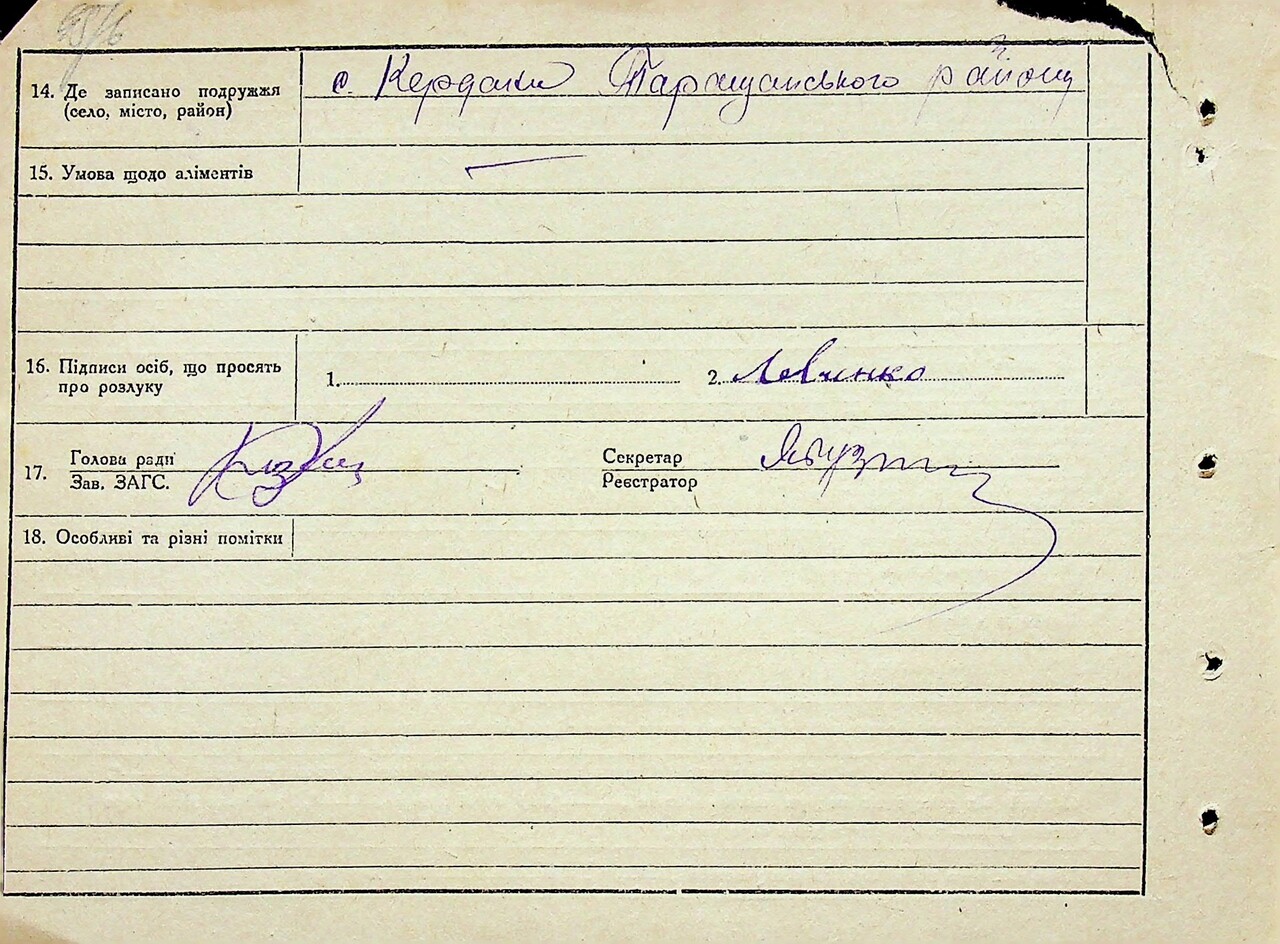 14. Де записано подружжя
(село, місто, район)
с. Кердани Таращанського району
15. Умова щодо аліментів
16. Підписи осіб, що просять
про розлуку
1.
2. Левченко
17.
Голова ради
Зав. ЗАГС.
Секретар
Реєстратор
18. Особливі та різні помітки